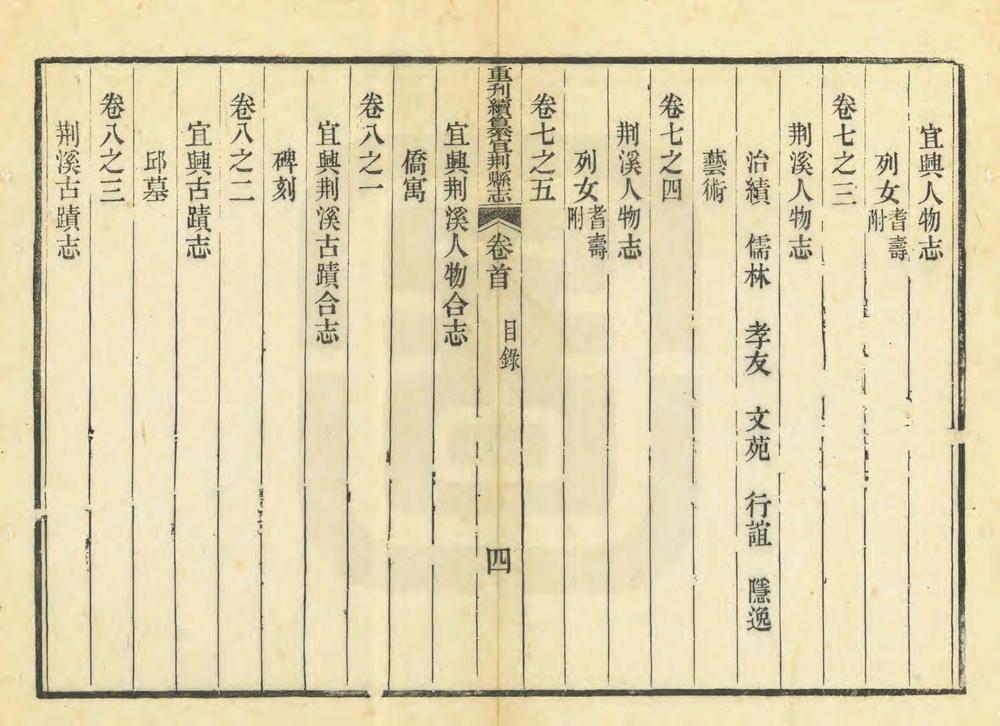 宜興人物志
列女耆壽附
卷七之三
荆溪人物志
治績 儒林 孝友 文苑 行誼 隱逸
藝術
卷七之四
荆溪人物志
列女耆壽附
卷七之五
重刊續纂宜荆縣志 卷首 目錄 四
宜興荆溪人物合志
僑寓
卷八之一
宜興荆溪古蹟合志
碑刻
卷八之二
宜興古蹟志
邱墓
卷八之三
荆溪古蹟志